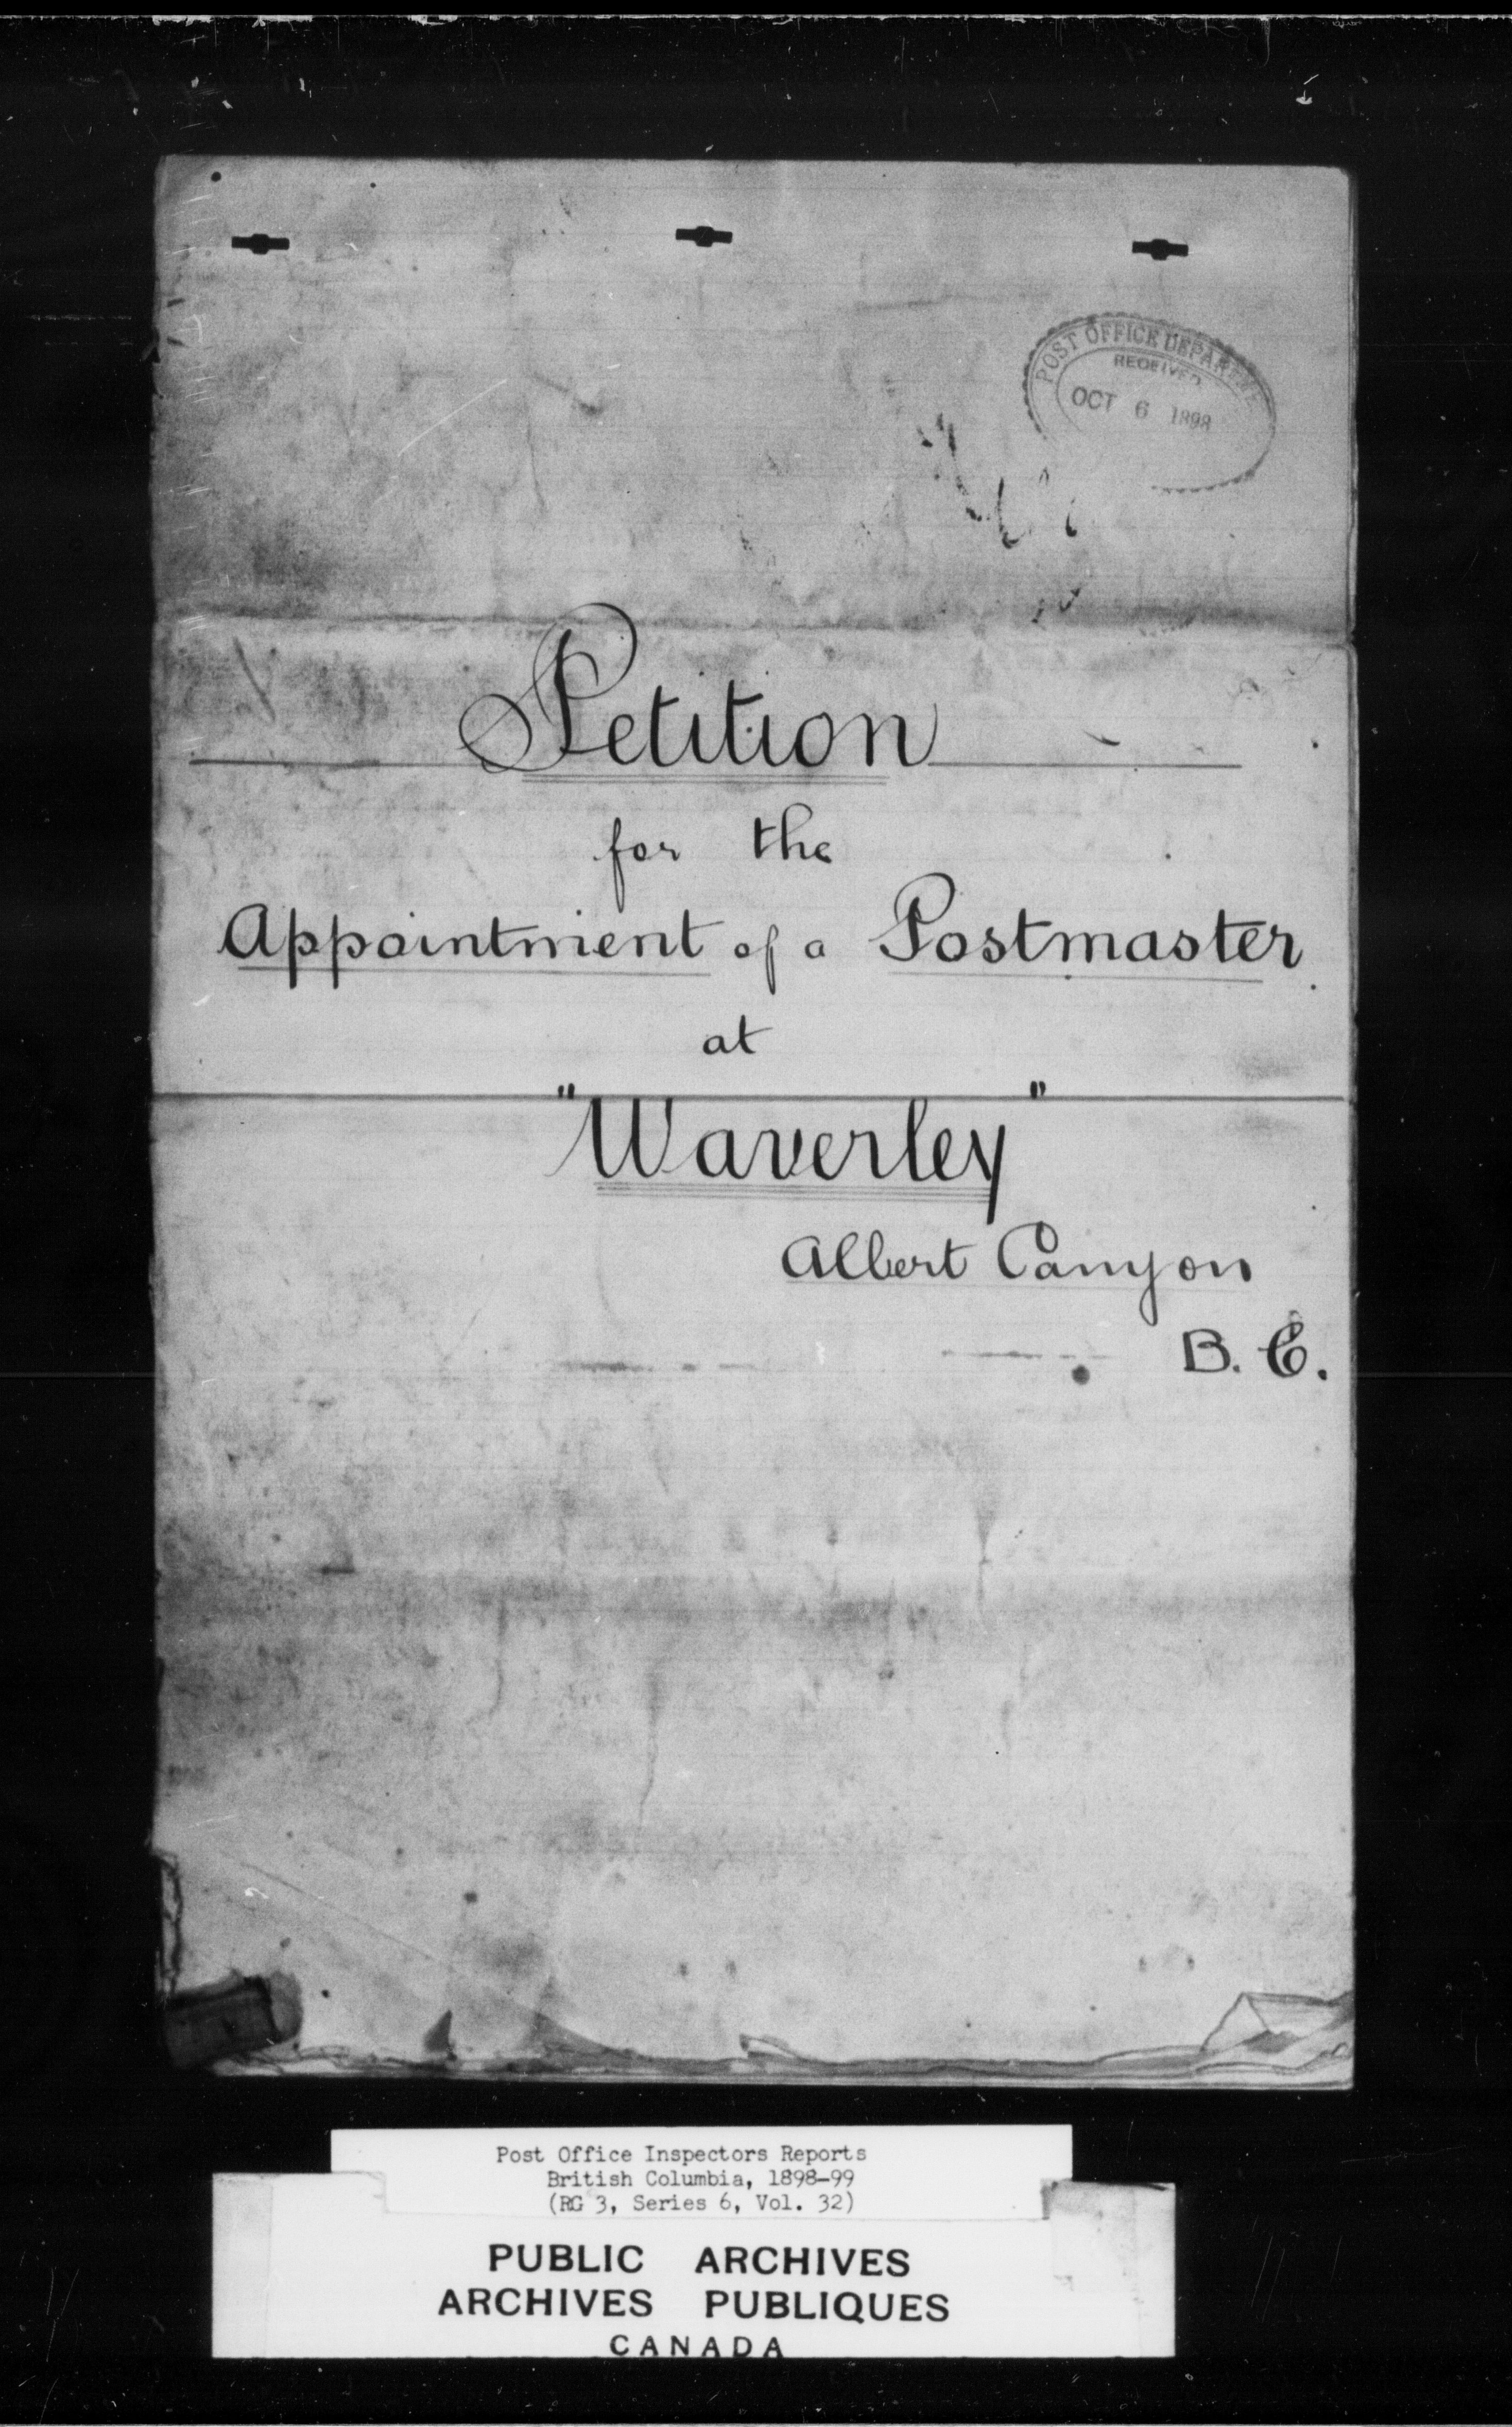 POST OFFICE DEPARTME
RECEIVED
OCT 6 1898
Petition
for the
Appointment of a Postmaster
at
"Waverley"
Albert Canyon
B. C.
Post Office Inspectors Reports
British Columbia, 1898-99
(RG 3, Series 6, Vol. 32)
PUBLIC ARCHIVES
ARCHIVES PUBLIQUES
CANADA